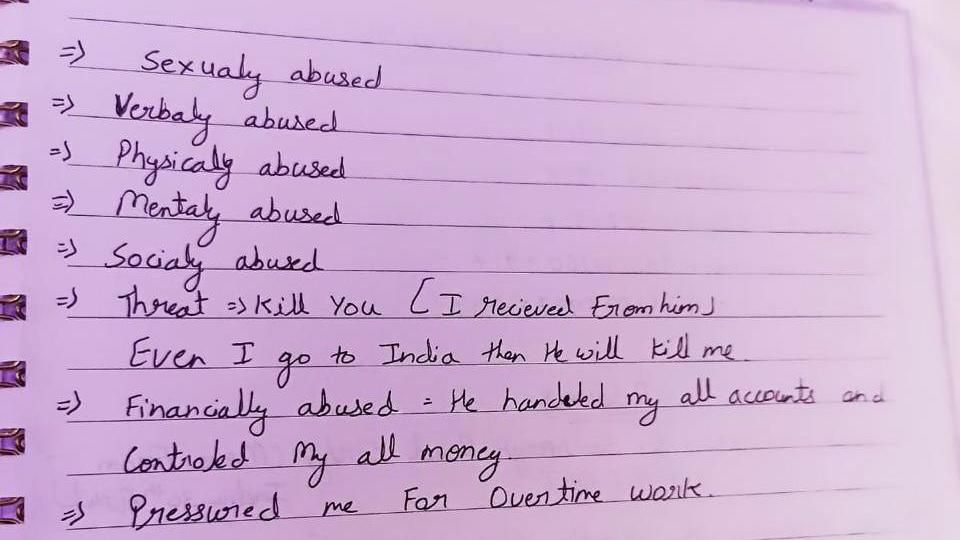 => Sexualy abused
=> Verbaly abused
=> Physicaly abused
=> Mentaly abused
=> Socialy abused
=> Threat => Kill You [I recieved From him]
Even I go to India then He will kill me.
=> Financially abused = He handeled my all accounts and
Controled My all money.
=> Pressured me For Overtime work.